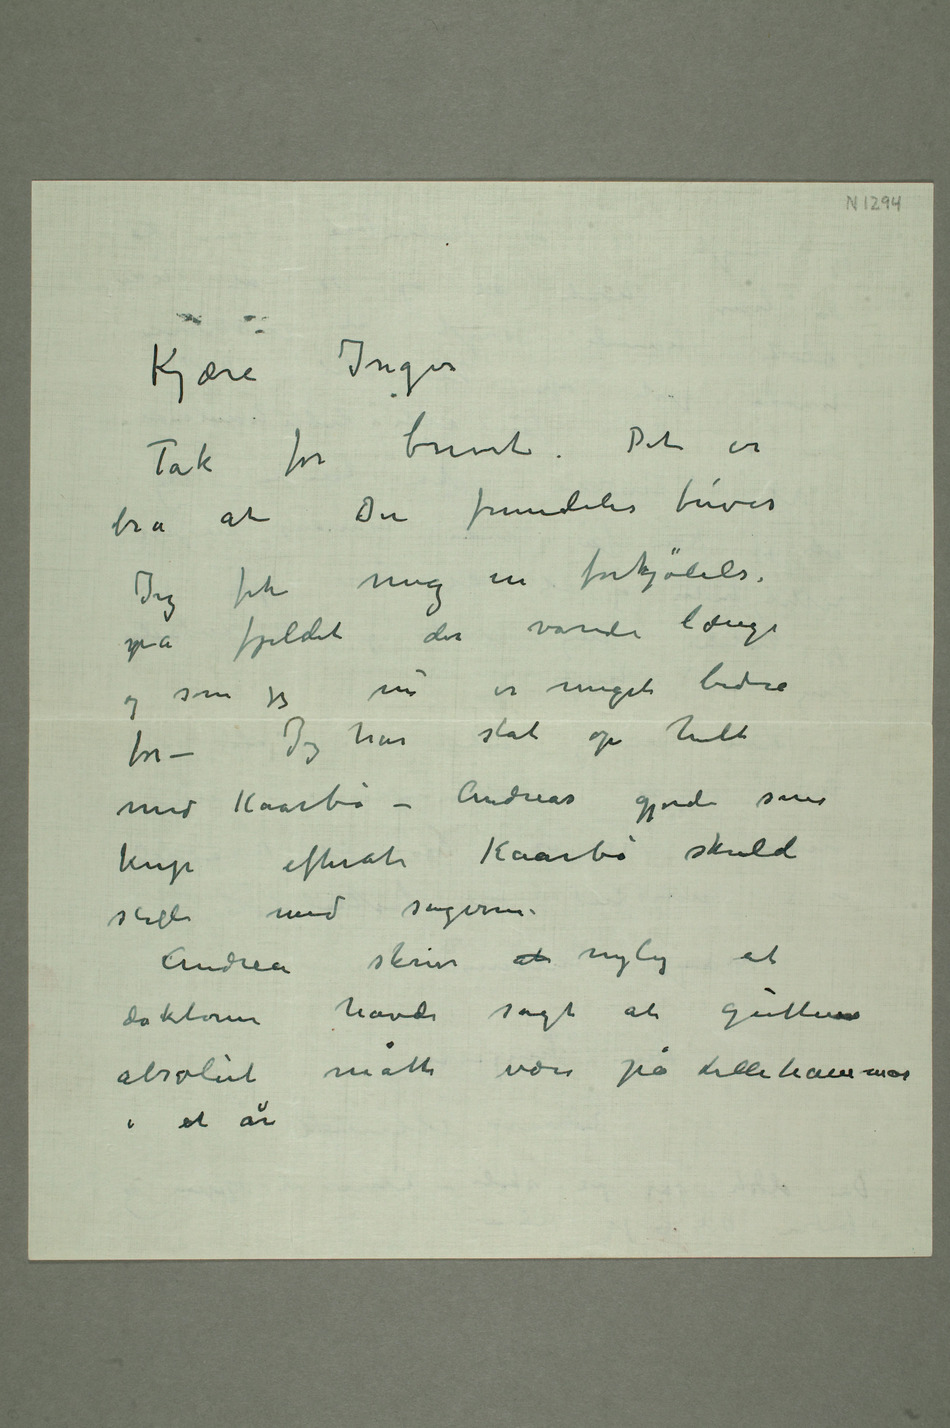 N 1294
Kjære Inger
Tak for brevet. Det er
bra at Du fremdeles trives
Jeg fik meg en forkjölels.
på fjeldet der varede længe
og som jeg nu er meget bedre
for – Jeg har slåt op helt
med Kaarbö – Andreas gjorde sine
knep efterat Kaarbö skuld
stelle med sagerne.
Andrea skrev at nylig at
doktoren havde sagt at gutten
absolut måtte være på Lillehammer
i et år